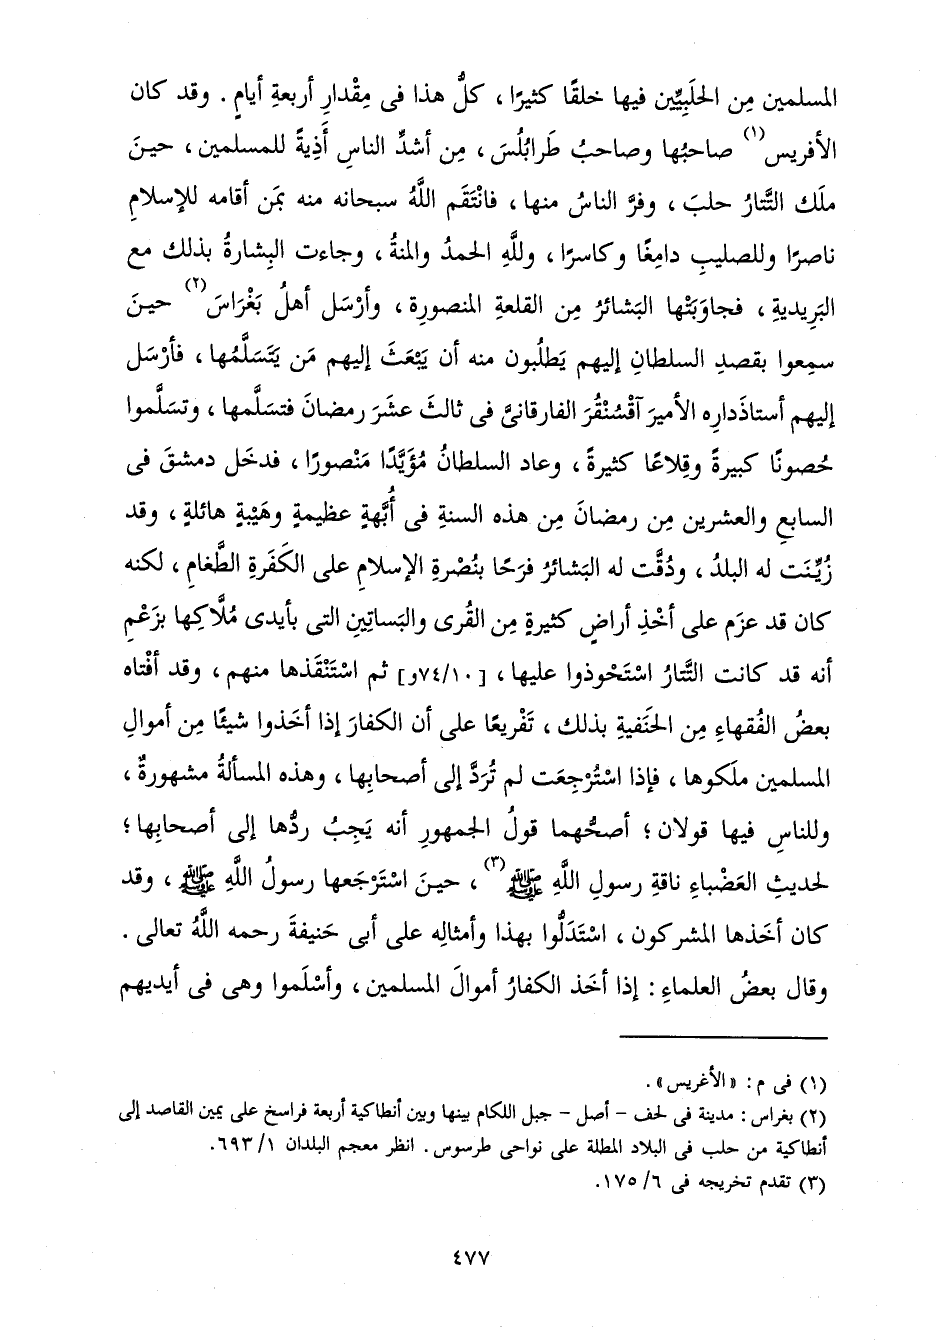 المسلمين مِن الحَلَبِيِّين فيها خلقًا كثيرًا ، كلُّ هذا فى مِقْدارِ أربعةِ أيامٍ . وقد كان
الأفريس(١) صاحبُها وصاحبُ طَرابُلُسَ ، مِن أشدِّ الناسِ أَذِيةً للمسلمين ، حينَ
ملَك التَّتارُ حلبَ ، وفرَّ الناسُ منها ، فانْتَقَم اللَّهُ سبحانه منه بمَن أقامه للإسلامِ
ناصرًا وللصليبِ دامِغًا وكاسرًا ، وللَّهِ الحمدُ والمنةُ ، وجاءت البِشارةُ بذلك مع
البَرِيديةِ ، فجاوَبَتْها البَشائرُ مِن القلعةِ المنصورةِ ، وأرْسَل أهلُ بَغْرَاسَ(٢) حينَ
سمِعوا بقصدِ السلطانِ إليهم يَطلُبون منه أن يَبْعَثَ إليهم مَن يَتَسَلَّمُها ، فأرْسَل
إليهم أستاذَدارِه الأميرَ آقْسُنْقُرَ الفارقانىَّ فى ثالثَ عشَرَ رمضانَ فتسَلَّمها ، وتسَلَّموا
حُصونًا كبيرةً وقِلاعًا كثيرةً ، وعاد السلطانُ مُؤَيَّدًا مَنْصورًا ، فدخَل دمشقَ فى
السابعِ والعشرين مِن رمضانَ مِن هذه السنةِ فى أُبَّهةٍ عظيمةٍ وهَيْبةٍ هائلةٍ ، وقد
زُيِّنَت له البلدُ ، ودُقَّت له البَشائرُ فرَحًا بنُصْرةِ الإسلامِ على الكَفَرةِ الطَّغامِ ، لكنه
كان قد عزَم على أخْذِ أراضٍ كثيرةٍ مِن القُرى والبَساتِينِ التى بأيدى مُلَّاكِها بزَعْمِ
أنه قد كانت التَّتارُ اسْتَحْوذوا عليها ، [٧٤/١٠و] ثم اسْتَنْقَذها منهم ، وقد أفْتاه
بعضُ الفُقهاءِ مِن الحَنَفيةِ بذلك ، تَفْريعًا على أن الكفارَ إذا أخَذوا شيئًا مِن أموالِ
المسلمين ملَكوها ، فإذا اسْتُرْجِعَت لم تُرَدَّ إلى أصحابِها ، وهذه المسألةُ مشهورةٌ ،
وللناسِ فيها قولان ؛ أصحُّهما قولُ الجمهورِ أنه يَجِبُ ردُّها إلى أصحابِها ؛
لحديثِ العَضْباءِ ناقةِ رسولِ اللَّهِ ﷺ(٣) ، حينَ اسْتَرْجَعها رسولُ اللَّهِ ﷺ ، وقد
كان أخَذها المشركون ، اسْتَدَلُّوا بهذا وأمثالِه على أبى حَنيفةَ رحمه اللَّهُ تعالى .
وقال بعضُ العلماءِ : إذا أخَذ الكفارُ أموالَ المسلمين ، وأسْلَموا وهى فى أيديهم
(١) فى م : «الأغريس» .
(٢) بغراس : مدينة فى لحف - أصل - جبل اللكام بينها وبين أنطاكية أربعة فراسخ على يمين القاصد إلى
أنطاكية من حلب فى البلاد المطلة على نواحى طرسوس . انظر معجم البلدان ١/ ٦٩٣.
(٣) تقدم تخريجه فى ٦/ ١٧٥.
٤٧٧